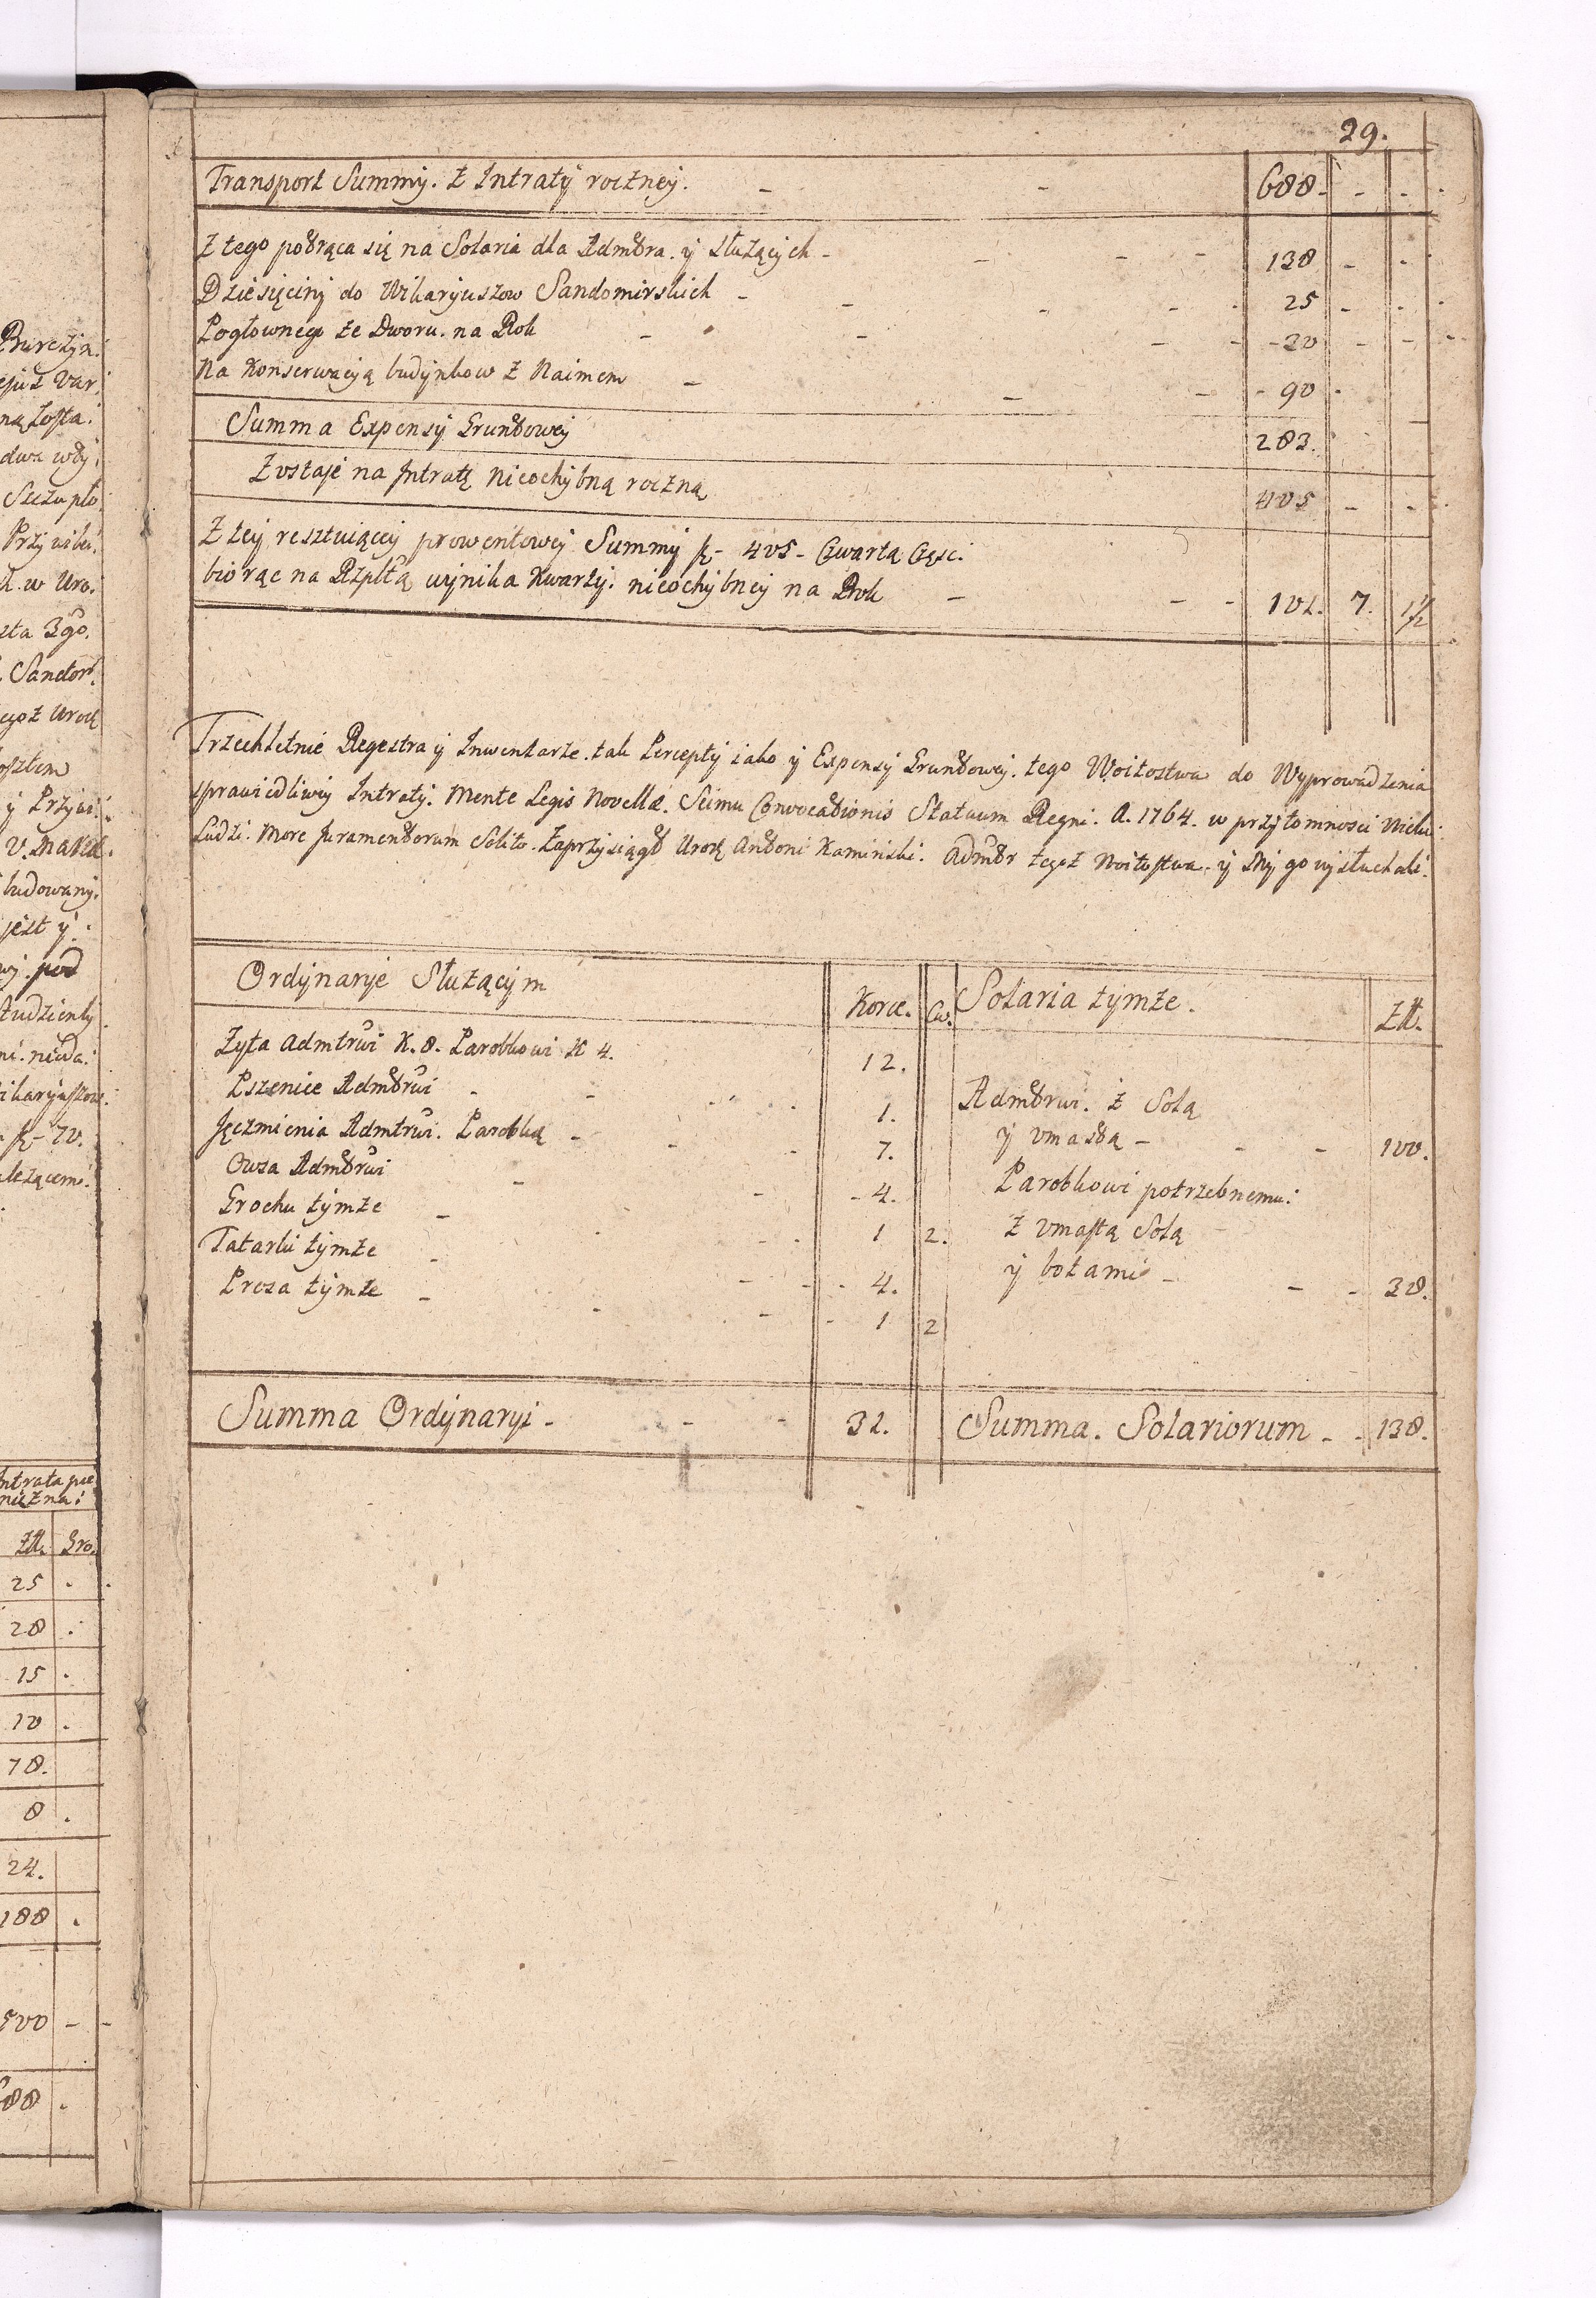 29.
Transport Summy. Z Intraty roczney. - - 688. - -
Z tego potrąca się na Solaria dla Admtra. y służących - - - - 138 - -
Dziesięciny do Wikaryuszow Sandomirskich - - - - 25 - -
Pogłownego ze Dworu. na Rok - - - - 30 - -
Na Konserwacyą budynkow z Naimem - - - 90
Summa Expensy Gruntowey 283.
Zostaje na Intratę nieochybną roczną 405 - -
Z tey resztuiącey prowentowey Summy fl- 405- Czwartą Część.
biorąc na Rzpltą wynika Kwarty. nieochybney na Rok - - - 101. 7. 1/2
Trzechletnie Regestra y Inwentarze. tak Percepty iako y Expensy Gruntowey. tego Woitostwa do Wyprowadzenia
sprawiedliwey Intraty. Mente Legis Novellæ. Seimu Convocationis Statuum Regni. A. 1764. w przytomnosci wielu
Ludzi. More Juramentorum Solito. Zaprzysiągł Urod Antoni Kaminski. Admtr tegoż Woitostwa. y My go wysłuchali.
Ordynarye Służącym Korce. Cw. Solaria tymże. Złł.
Zyta Admtrwi K. 8. Parobkowi K 4. 12.
Pszenice Admtrwi - - 1.
Jęczmienia Admtrwi. Parobką - - 7.
Owsa Admtrwi - - 4.
Grochu tymże - - 1 2.
Tatarki tymże - - 4.
Prosa tymże - - 1 2
Admtrwi. z Solą
y omastą - - - 100.
Parobkowi potrzebnemu:
z omastą Solą
y botami - - - 38.
Summa Ordynaryi - - - 31. Summa. Solariorum - - 138.
Intrata pie
niężna:
Złł. Gro.
25 .
28 .
15 .
10 .
78.
8 .
24.
188 .
500 - -
688 .